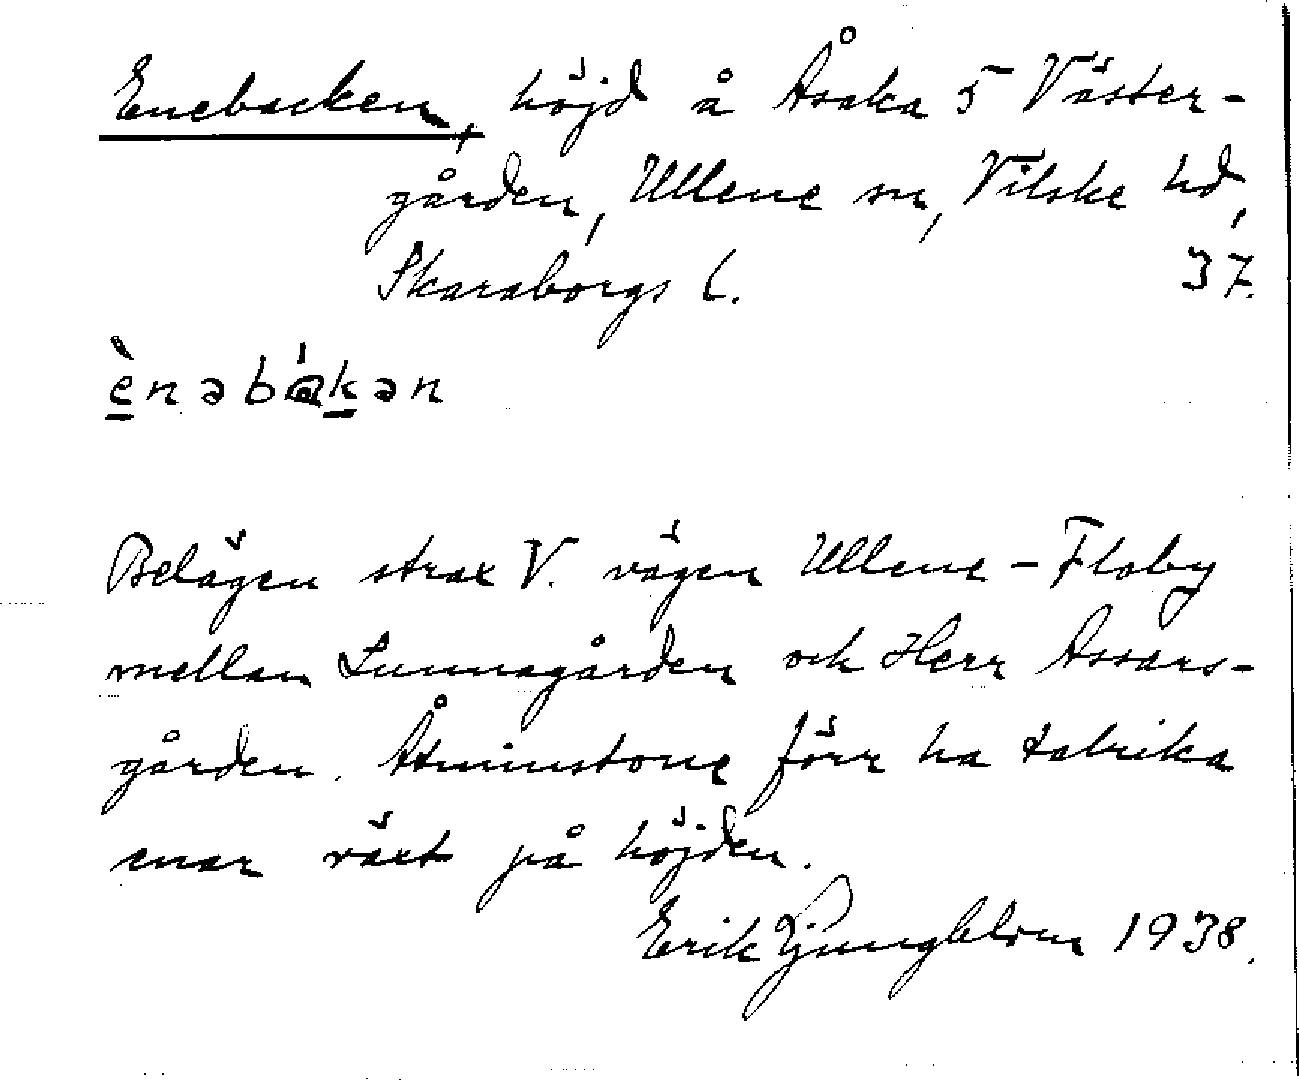 Enebacken, höjd å Åsaka 5 Väster-
gården, Ullene sn, Vilske hd,
Skaraborgs l. 37.
ènəbákən
Belägen strax V. vägen Ullene - Floby
mellan Lunnagården och Herr Assars-
gården. Åtminstone förr ha talrika
enar växt på höjden.
Erik Ljungblom 1938.